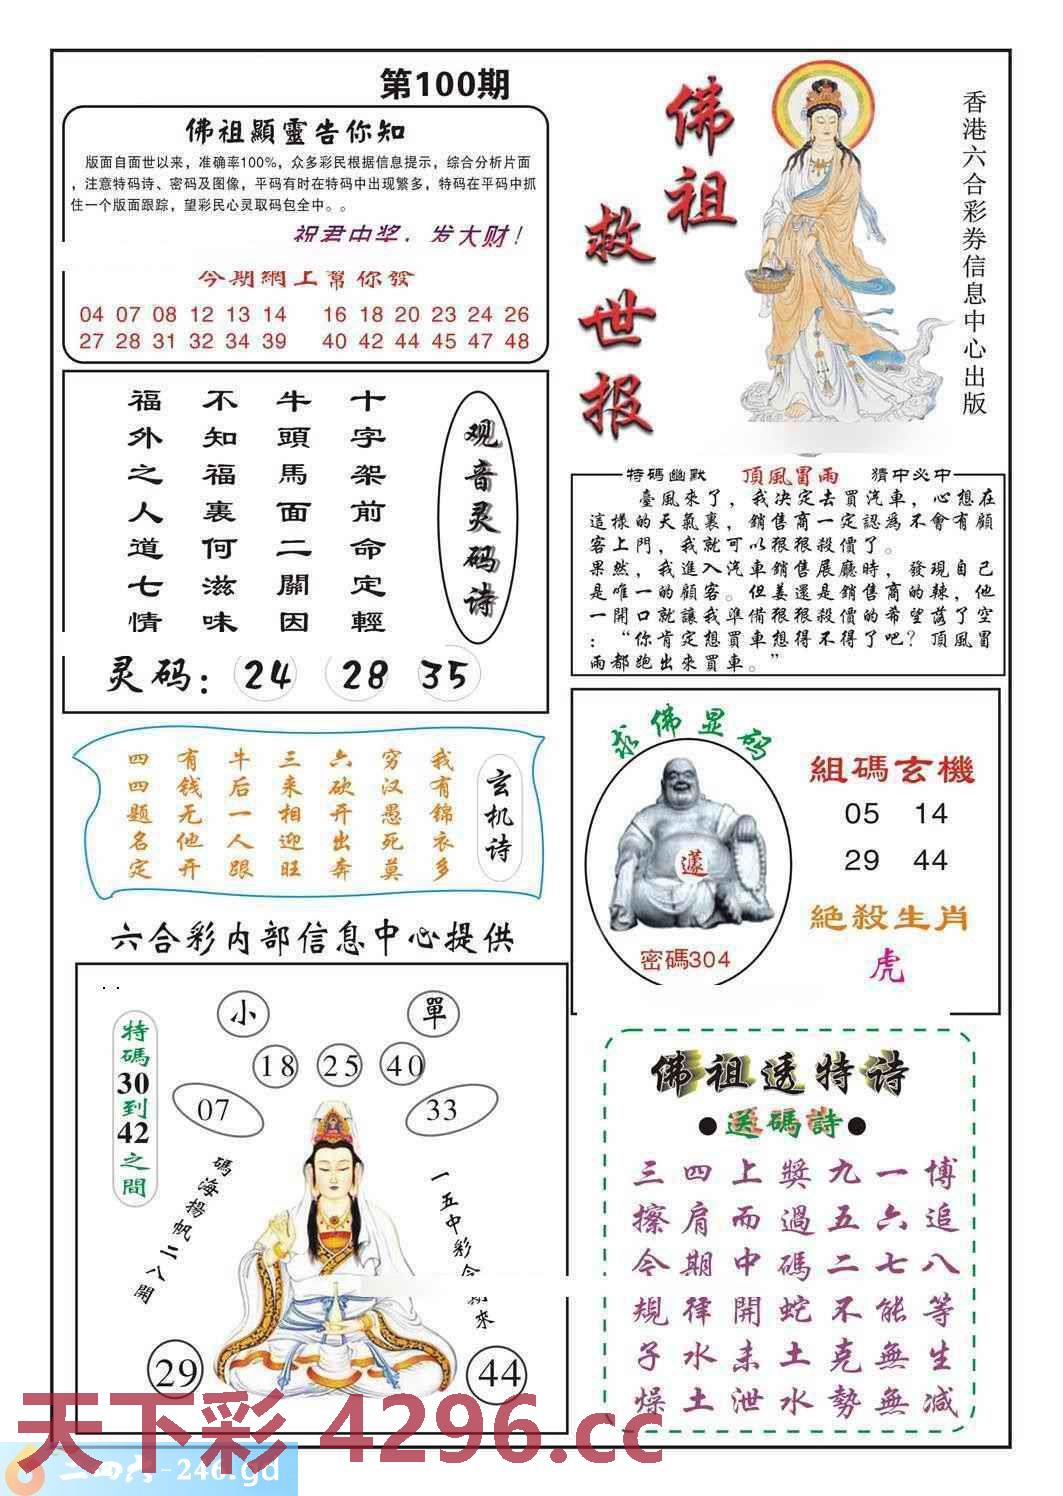 第100期
佛祖顯靈告你知
版面自面世以来，准确率100%，众多彩民根据信息提示，综合分析片面
，注意特码诗、密码及图像，平码有时在特码中出现繁多，特码在平码中抓
住一个版面跟踪，望彩民心灵取码包全中。。
祝君中奖，发大财！
今期網上幫你發
04 07 08 12 13 14 16 18 20 23 24 26
27 28 31 32 34 39 40 42 44 45 47 48
佛祖
救世报
香港六合彩券信息中心出版
观音灵码诗
十字架前命定輕
牛頭馬面二關因
不知福裏何滋味
福外之人道七情
灵码：24 28 35
特碼幽默 頂風冒雨 猜中必中
臺風來了，我决定去買汽車，心想在
這樣的天氣裏，銷售商一定認為不會有顧
客上門，我就可以狠狠殺價了。
果然，我進入汽車銷售展廳時，發現自己
是唯一的顧客。但姜還是銷售商的辣，他
一開口就讓我準備狠狠殺價的希望落了空
：“你肯定想買車想得不得了吧？頂風冒
雨都跑出來買車。”
玄机诗
我有锦衣多
穷汉愚死莫
六砍开出奔
三来相迎旺
牛后一人跟
有钱无他开
四四题名定
求佛显码
密碼304
組碼玄機
05 14
29 44
絕殺生肖
虎
六合彩内部信息中心提供
特碼30到42之間
小
單
18 25 40
07
33
碼海揚帆二八開
一五中彩今期來
29
44
佛祖透特诗
●送碼詩●
三四上獎九一博
擦肩而過五六追
今期中碼二七八
規律開蛇不能等
子水未土克無生
燥土泄水勢無减
天下彩 4296.cc
二四六-246.gd